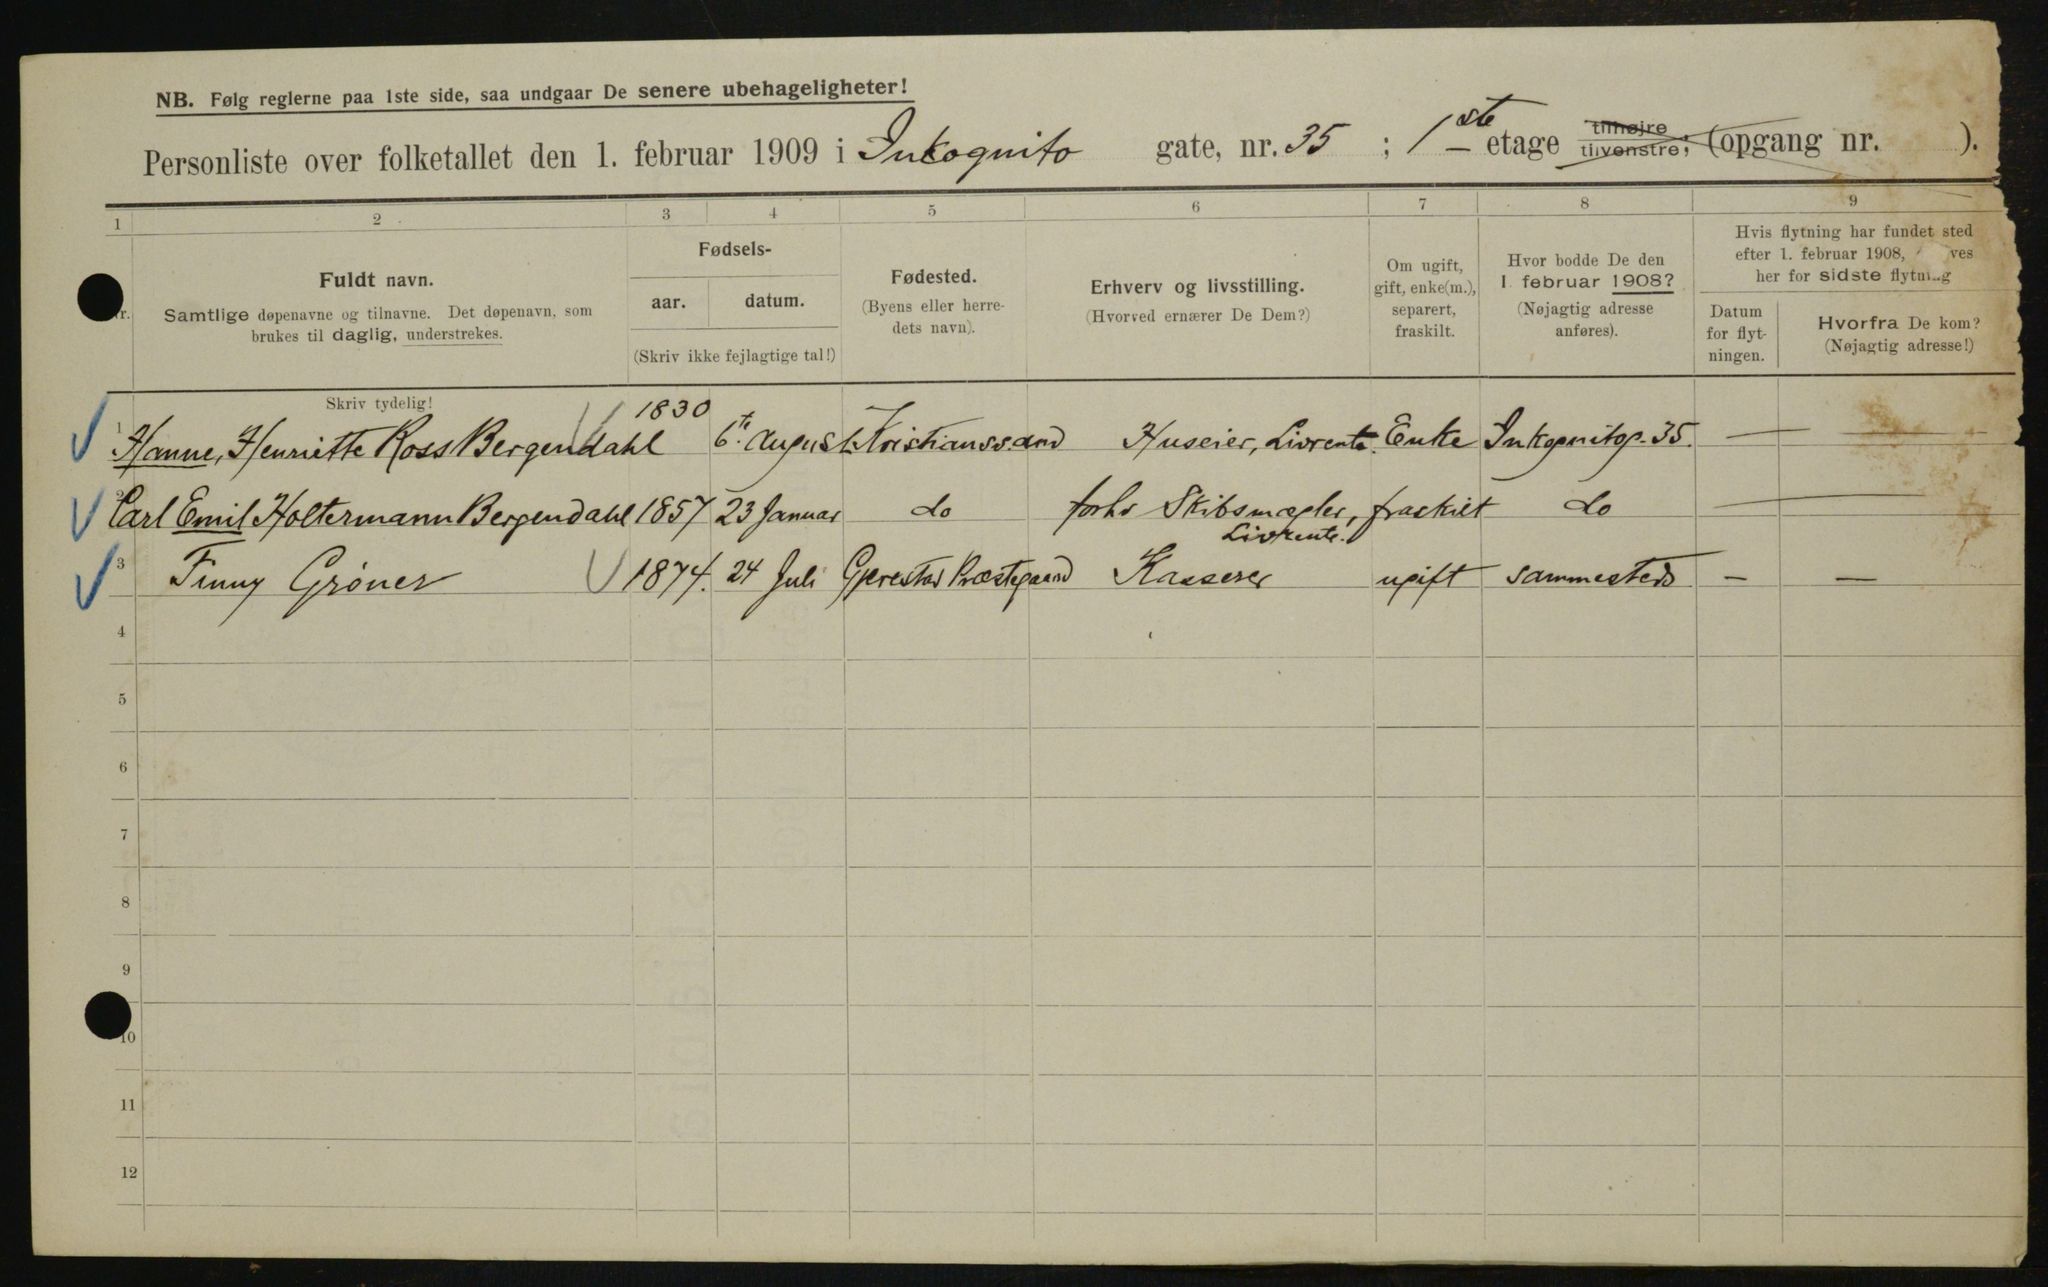 NB. Følg reglerne paa 1ste side, saa undgaar De senere ubehageligheter!
Personliste over folketallet den 1. februar 1909 i Inkognito gate, nr. 35 ; 1ste etage tilhøjre tilvenstre, (opgang nr. ).
1 2 3 4 5 6 7 8 9
Fuldt navn.
Samtlige døpenavne og tilnavne. Det døpenavn, som
brukes til daglig, understrekes.
Skriv tydelig!
Fødsels-
aar. datum.
(Skriv ikke fejlagtige tal!)
Fødested.
(Byens eller herre-
dets navn).
Erhverv og livsstilling.
(Hvorved ernærer De Dem?)
Om ugift,
gift, enke(m.),
separert,
fraskilt.
Hvor bodde De den
1 februar 1908?
(Nøjagtig adresse
anføres).
Hvis flytning har fundet sted
efter 1. februar 1908, ves
her for sidste flytning
Datum
for flyt-
ningen.
Hvorfra De kom?
(Nøjagtig adresse!)
1 Hanne, Henriette Ross Bergendahl 1830 6te August Kristianssand Huseier, Livrente. Enke Inkognitog. 35. —
2 Carl Emil Holtermann Bergendahl 1857 23 Januar do forhv Skibsmægler, Livrente. fraskilt do —
3 Finny Grøner 1874. 24 Juli Gjerestad Præstegaard Kasserer ugift sammesteds — —
4
5
6
7
8
9
10
11
12